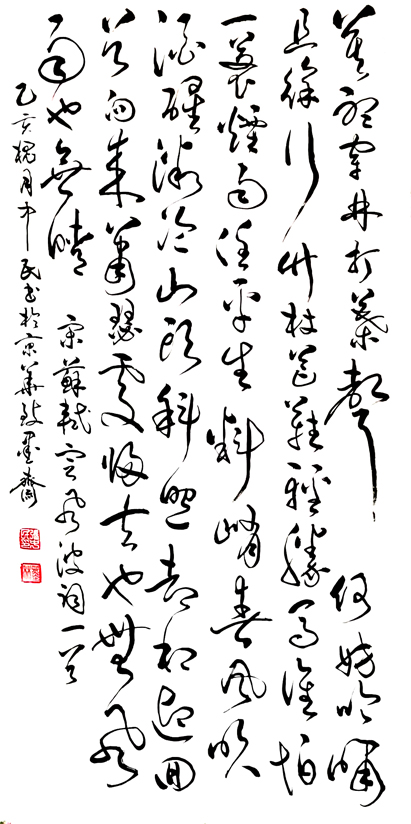 莫聽穿林打葉聲 何妨吟嘯
且徐行 竹杖芒鞋輕勝馬 誰怕
一蓑煙雨任平生 料峭春風吹
酒醒微冷山頭斜照却相迎回
首向来蕭瑟處歸去也無風
雨也無晴 宋蘇軾定風波詞一首
乙亥槐月中民书於京華墨齋